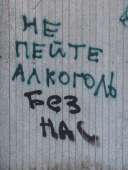 НЕ
ПЕЙТЕ
АЛКОГОЛЬ
БЕЗ
НАС